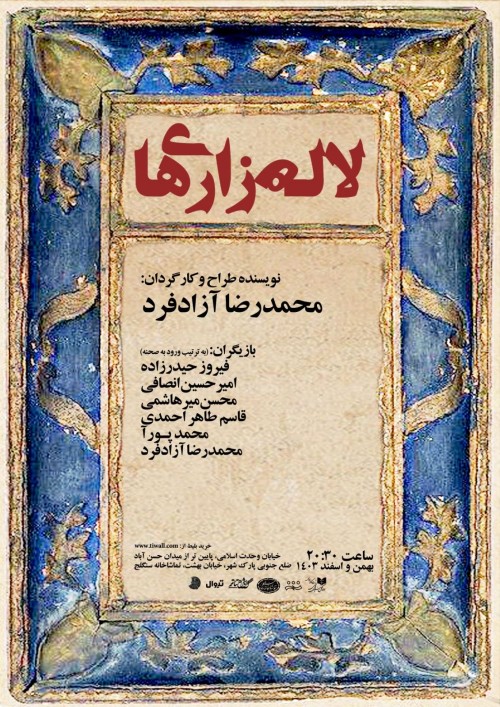 لاله‌زاری‌ها
نویسنده طراح و کارگردان:
محمدرضا آزادفرد
بازیگران: (به ترتیب ورود به صحنه)
فیروز حیدرزاده
امیرحسین انصافی
محسن میرهاشمی
قاسم طاهر احمدی
محمد پورآ
محمدرضا آزادفرد
خرید بلیط از: www.tiwall.com
ساعت ۲۰:۳۰
بهمن و اسفند ۱۴۰۳
خیابان وحدت اسلامی، پایین تر از میدان حسن آباد
ضلع جنوبی پارک شهر، خیابان بهشت، تماشاخانه سنگلج
تیوال